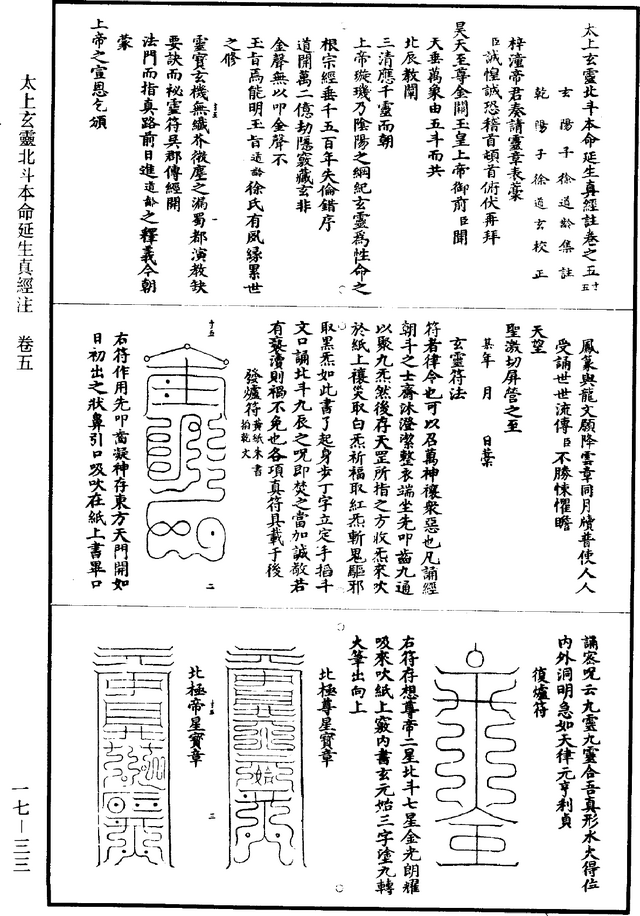 太上玄靈北斗本命延生真經註卷之五
玄陽子徐道齡集註
乾陽子徐道玄校正
梓潼帝君奏請靈章表藁
臣誠惶誠恐稽首頓首俯伏再拜
昊天至尊金闕玉皇上帝御前臣聞
天垂萬象由五斗而共
北辰教闡
三清應千靈而朝
上帝璇璣乃陰陽之綱紀玄靈為性命之
根宗經垂千五百年失倫錯序
道開萬二億劫隱竅藏玄非
金聲無以叩金聲不
玉旨焉能明玉旨道齡徐氏有夙緣累世
之修
靈寶玄機無纖芥微塵之漏蜀都演教缺
要訣而祕靈符吳郡傳經開
法門而指真路前日進道齡之釋義今朝
蒙
上帝之宣恩乞頒
鳳篆與龍文願降雲章同月牘普使人人
受誦世世流傳臣不勝悚懼瞻
天望
聖激切屏營之至
某年 月 日藁
玄靈符法
符者律令也可以召萬神禳衆惡也凡誦經
朝斗之士齋沐澄潔整衣端坐先叩齒九通
以聚九炁然後存天罡所指之方收炁來吹
於紙上禳災取白炁祈福取紅炁斬鬼驅邪
取黑炁如此書了起身步丁字立定手搯斗
文口誦北斗九辰之呪即焚之當加誠敬若
有褻瀆則禍不免也各項真符具載于後
發爐符 黃紙朱書 搯龍文
右符作用先叩齒凝神存東方天門開如
日初出之狀鼻引口吸吹在紙上書畢口
誦密呪云九靈九靈合吾真形水火得位
內外洞明急如天律元亨利貞
復爐符
右符存想尊帝二星北斗七星金光朗耀
吸來吹紙上竅內書玄元始三字塗九轉
火筆出向上
北極尊星寶章
北極帝星寶章
太上玄靈北斗本命延生真經注 卷五
一七—三三